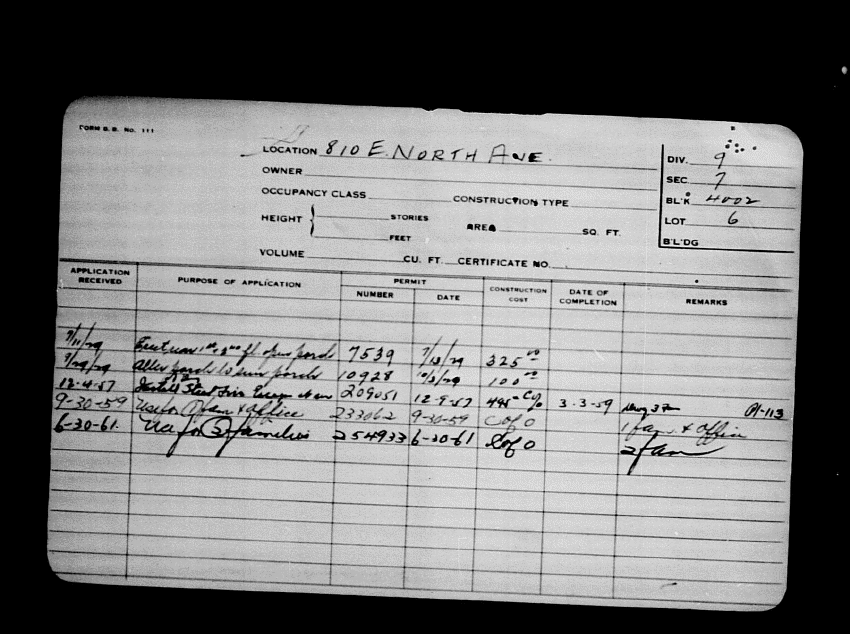 FORM B. B. NO. 111
LOCATION 810 E. NORTH AVE.
DIV. 9
OWNER
SEC. 7
OCCUPANCY CLASS CONSTRUCTION TYPE
BL'K 4002
HEIGHT { STORIES AREA SQ. FT.
LOT 6
FEET
B'L'DG
VOLUME CU. FT. CERTIFICATE NO.
APPLICATION RECEIVED PURPOSE OF APPLICATION PERMIT NUMBER DATE CONSTRUCTION COST DATE OF COMPLETION REMARKS
9/11/29 1st, 2nd fl. open porch 7539 9/13/29 325 00
9/29/29 Alter porch to sun porch 10928 10/3/29 100 00
12-4-57 Install Steel Fire 209051 12-9-57 495 - C/O 3-3-59
9-30-59 Use for 1 fam & office 233062 9-30-59 C of O 1 fam. & office
6-30-61. Use for 2 families 254933 6-30-61 C of O 2 fam